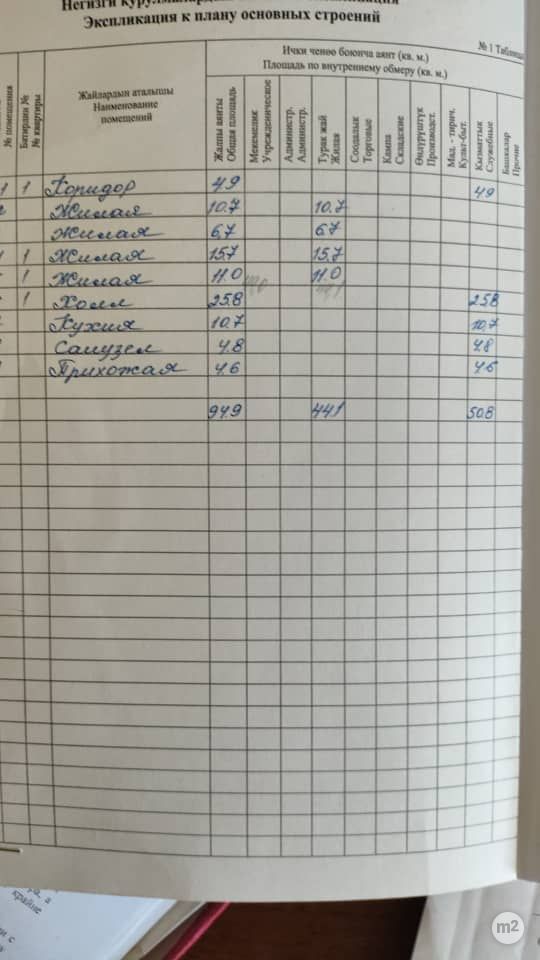 Экспликация к плану основных строений
№ 1 Таблица
Ички ченөө боюнча аянт (кв. м.)
Площадь по внутреннему обмеру (кв. м.)
№ помещения
Батирдин №
№ квартиры
Жайлардын аталышы
Наименование
помещений
Жалпы аянты
Общая площадь
Мекемелик
Учрежденическое
Администр.
Администр.
Турак жай
Жилая
Соодалык
Торговые
Кампа
Складские
Өндүрүштүк
Производст.
Мад. - тирич.
Культ-быт.
Кызматтык
Служебные
Башкалар
Прочие
1 1 Коридор 4.9 4.9
Жилая 10.7 10.7
Жилая 6,7 6.7
1 Жилая 15.7 15.7
1 Жилая 11.0 11.0
1 Холл 25.8 25.8
Кухня 10.7 10,7
Санузел 4.8 4.8
Прихожая 4.6 4.6
94.9 44.1 50.8
крайне
m2